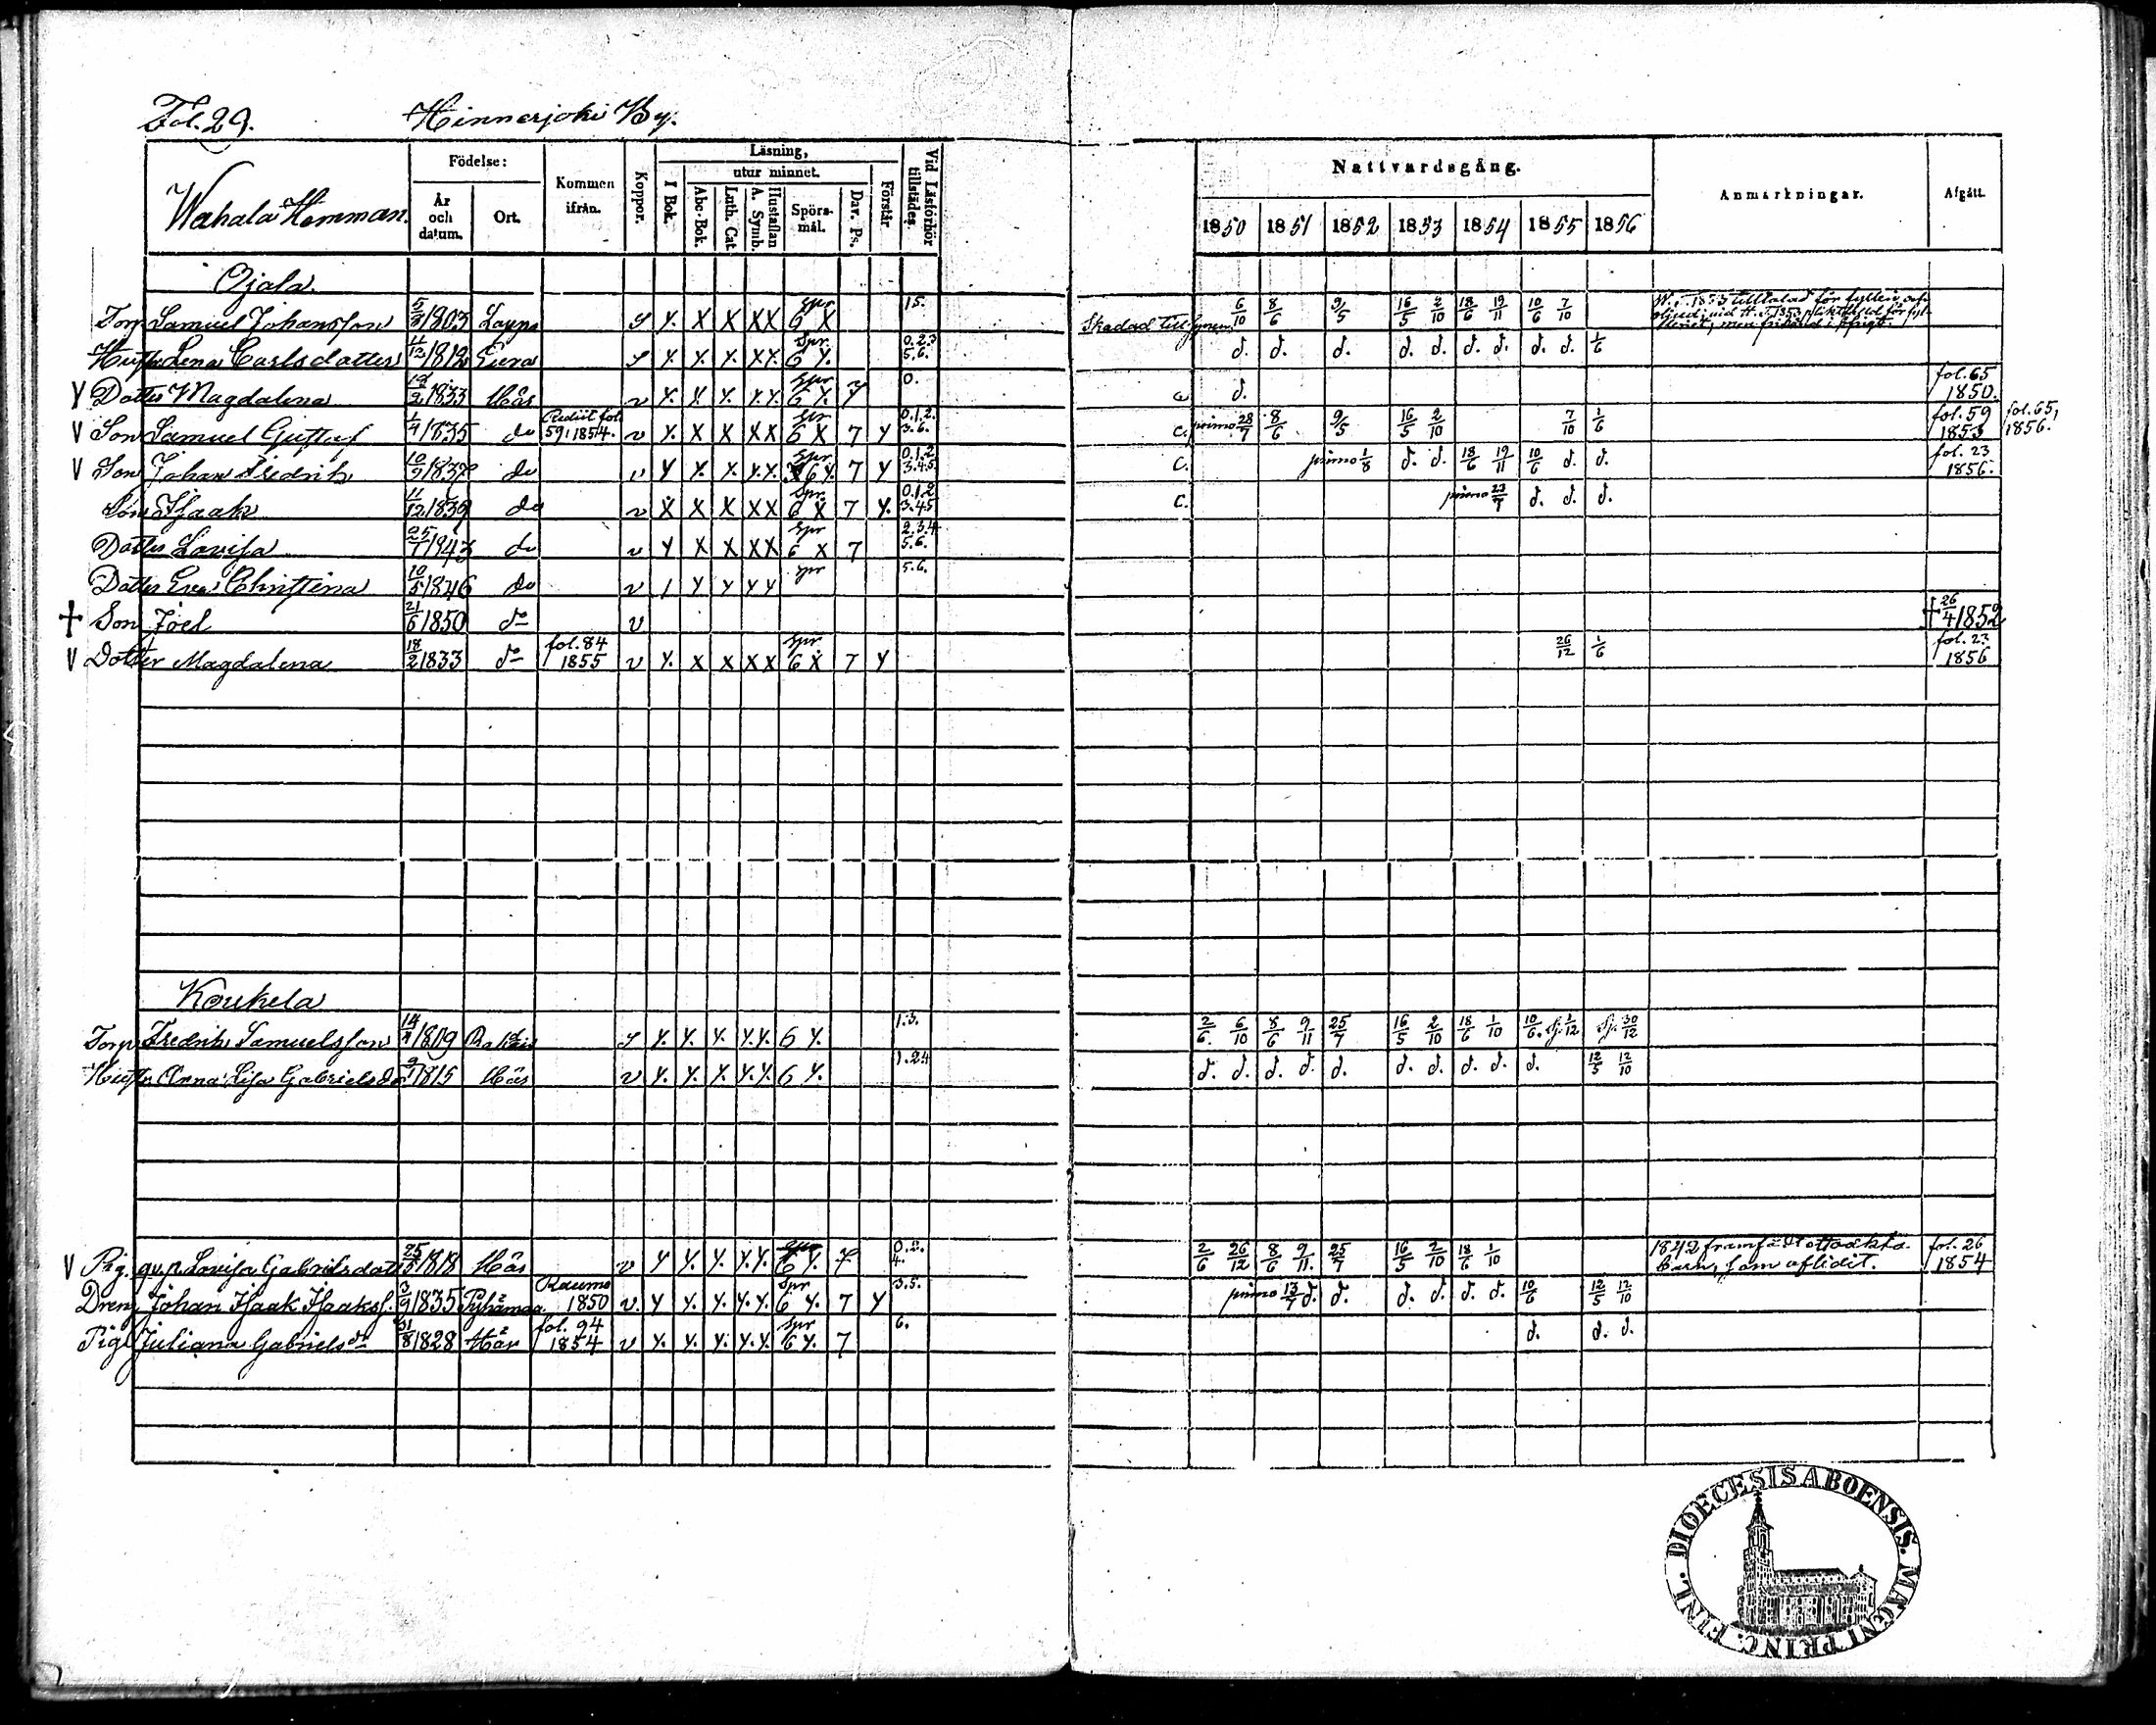 Fol. 29. Hinnerjoki By.
Wahala Hemman. Födelse: År och datum. Ort. Kommen ifrån. Koppor. Läsning, I Bok. utur minnet. Abc-Bok. Luth. Cat. A. Symb. Hustaflan Spörsmål. Dav. Ps. Förstår Vid Läsförhör tillstädes. Nattvardsgång. 1850 1851 1852 1853 1854 1855 1856 Anmärkningar. Afgått.
Ojala.
Torp. Samuel Johansson 5/3 1803 S Y. X X XX 6 X spr 15. Skadad till 6/10 8/6 9/5 16/5 2/10 18/6 19/11 10/6 7/10
Hustr. Lena Carlsdotter 4/12 1812 Eura S Y. Y. Y. X Y. Spr 6 Y. 0.2.3 5.6. d. d. d. d. d. d. d. d. d. 1/6
V Dotter Magdalena 18/2 1833 Hås v Y. Y. Y. Y. Y. Spr 6 Y. 7 0. d. fol. 65 1850.
V Son Samuel Gustaf 1/4 1835 do Rediit fol. 59, 1854. v Y. X X XX 6 X 7 Y 0.1.2. 3.6. c. primo 28/7 8/6 9/5 16/5 2/10 7/10 1/6 fol. 59 1853 fol. 65, 1856.
V Son Johan Fredrik 10/9 1837 do v Y Y. X. Y. Y. Spr 6 Y. 7 Y 0.1.2 3.4.5 C. primo 1/8 d. d. 18/6 19/11 10/6 d. d. fol. 23 1856.
Son Isaak 11/12 1839 do v X X X XX Spr 6 X 7 Y. 0.1.2 3.45 C. primo 23/7 d. d. d.
Dotter Lovisa 25/7 1843 do v Y X X XX spr 6 X 7 2.3.4 5.6.
Dotter Eva Christina 10/5 1846 do v 1 Y Y Y Y spr 5.6.
† Son Joel 21/6 1850 do v † 26/4 1852
V Dotter Magdalena 18/2 1833 do fol. 84 1855 v Y. X X XX spr 6 X 7 Y 26/12 1/6 fol. 23 1856
Koukela
Torp. Fredrik Samuelsson 14/4 1809 S Y. Y. Y. Y. Y. 6 Y. 1.3. 2/6 6/10 8/6 9/11 25/7 16/5 2/10 18/6 1/10 10/6 1/12 30/12
Hustr. Anna Lisa Gabrielsdr 9/1 1815 Hås v Y. Y. Y. Y. Y. 6 Y. 1.24 d. d. d. d. d. d. d. d. d. d. 12/5 12/10
V Pig. qv.p. Lovisa Gabrielsdotr 25/5 1818 Hås v Y Y. Y. Y. Y. 6 Y. 7 0.2. 4. 2/6 26/12 8/6 9/11 25/7 16/5 2/10 18/6 1/10 1842 framfödt oäkta barn, som aflidit. fol. 26 1854
Dreng Johan Isaak Isaakss. 3/9 1835 Pyhämaa Raumo 1850 v. Y Y. Y. Y. Y. Spr 6 Y. 7 Y 3.5. primo 13/7 d. d. d. d. d. d. 10/6 12/5 12/10
Piga Juliana Gabrielsdr 31/8 1828 Hås fol. 94 1854 v Y. Y. Y. Y. Y. spr 6 Y. 7 6. d. d. d.
DIOECESIS ABOENSIS. MAGNI PRINC. FINL.